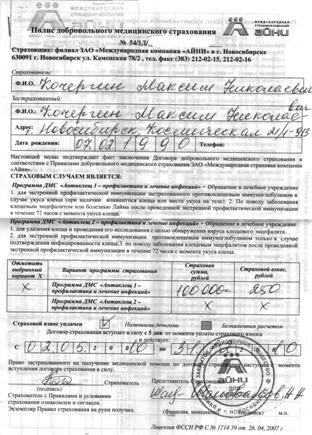 Полис добровольного медицинского страхования
№ 54/1Д/
Страховщик: филиал ЗАО «Международная компания «АЙНИ» в г. Новосибирске
630091 г. Новосибирск ул. Каменская 78/2 , тел. факс (383) 212-02-15, 212-02-16
МЕЖДУНАРОДНАЯ
АЙНИ
Страхователь:
Ф.И.О. Кочергин Максим Николаевич
Застрахованный:
Ф.И.О.: Кочергин Максим Николаевич
Адрес: г. Новосибирск, Космическая
Дата рождения: 1990 Телефон
Настоящий полис подтверждает факт заключения Договора добровольного медицинского страхования в
соответствии с Правилами добровольного медицинского страхования ЗАО «Международная страховая компания
«Айни».
СТРАХОВЫМ СЛУЧАЕМ ЯВЛЯЕТСЯ:
Программа ДМС «Антиклещ 1 – профилактика и лечение инфекций» - Обращение в лечебное учреждение
1. для экстренной профилактической иммунизации застрахованного противоклещевым иммуноглобулином в
случае укуса клеща (при наличии впившегося клеща или места укуса на теле); 2. По поводу заболевания
клещевым энцефалитом или болезнью Лайма после проведенной экстренной профилактической иммунизации
в течение 72 часов с момента укуса клеща.
Программа ДМС «Антиклещ 2 – профилактика и лечение инфекций» - Обращение в лечебное учреждение
1. для удаления клеща и проведения его исследования с целью обнаружения вируса клещевого энцефалита.
2. для экстренной профилактической иммунизации противоклещевым иммуноглобулином только в случае
подтверждения инфицированности клеща.3. по поводу заболевания клещевым энцефалитом после проведенной
экстренной профилактической иммунизации в течение 72 часов с момента укуса клеща.
Отметить выбранный вариант X
Вариант программы страхования
Страховая сумма, рублей
Страховой взнос, рублей
Программа ДМС «Антиклещ 1 – профилактика и лечение инфекций» 100 000= 250
Программа ДМС «Антиклещ 2 – профилактика и лечение инфекций» X X
Страховой взнос уплачен Наличными деньгами Безналичным расчетом
Договор страхования вступает в силу с 5 дня с момента уплаты страхового взноса
и действует:
Право застрахованного на получение медицинской помощи по договору страхования наступает с момента
вступления договора страхования в силу.
Страхователь
(подпись)
Страхователь с Правилами и условиями
страхования ознакомлен и согласен.
Экземпляр Правил страхования на руки получил.
Представитель Страховщика
АЙНИ
Лицензия ФССН РФ С № 1714 39 от 26. 04. 2007 г